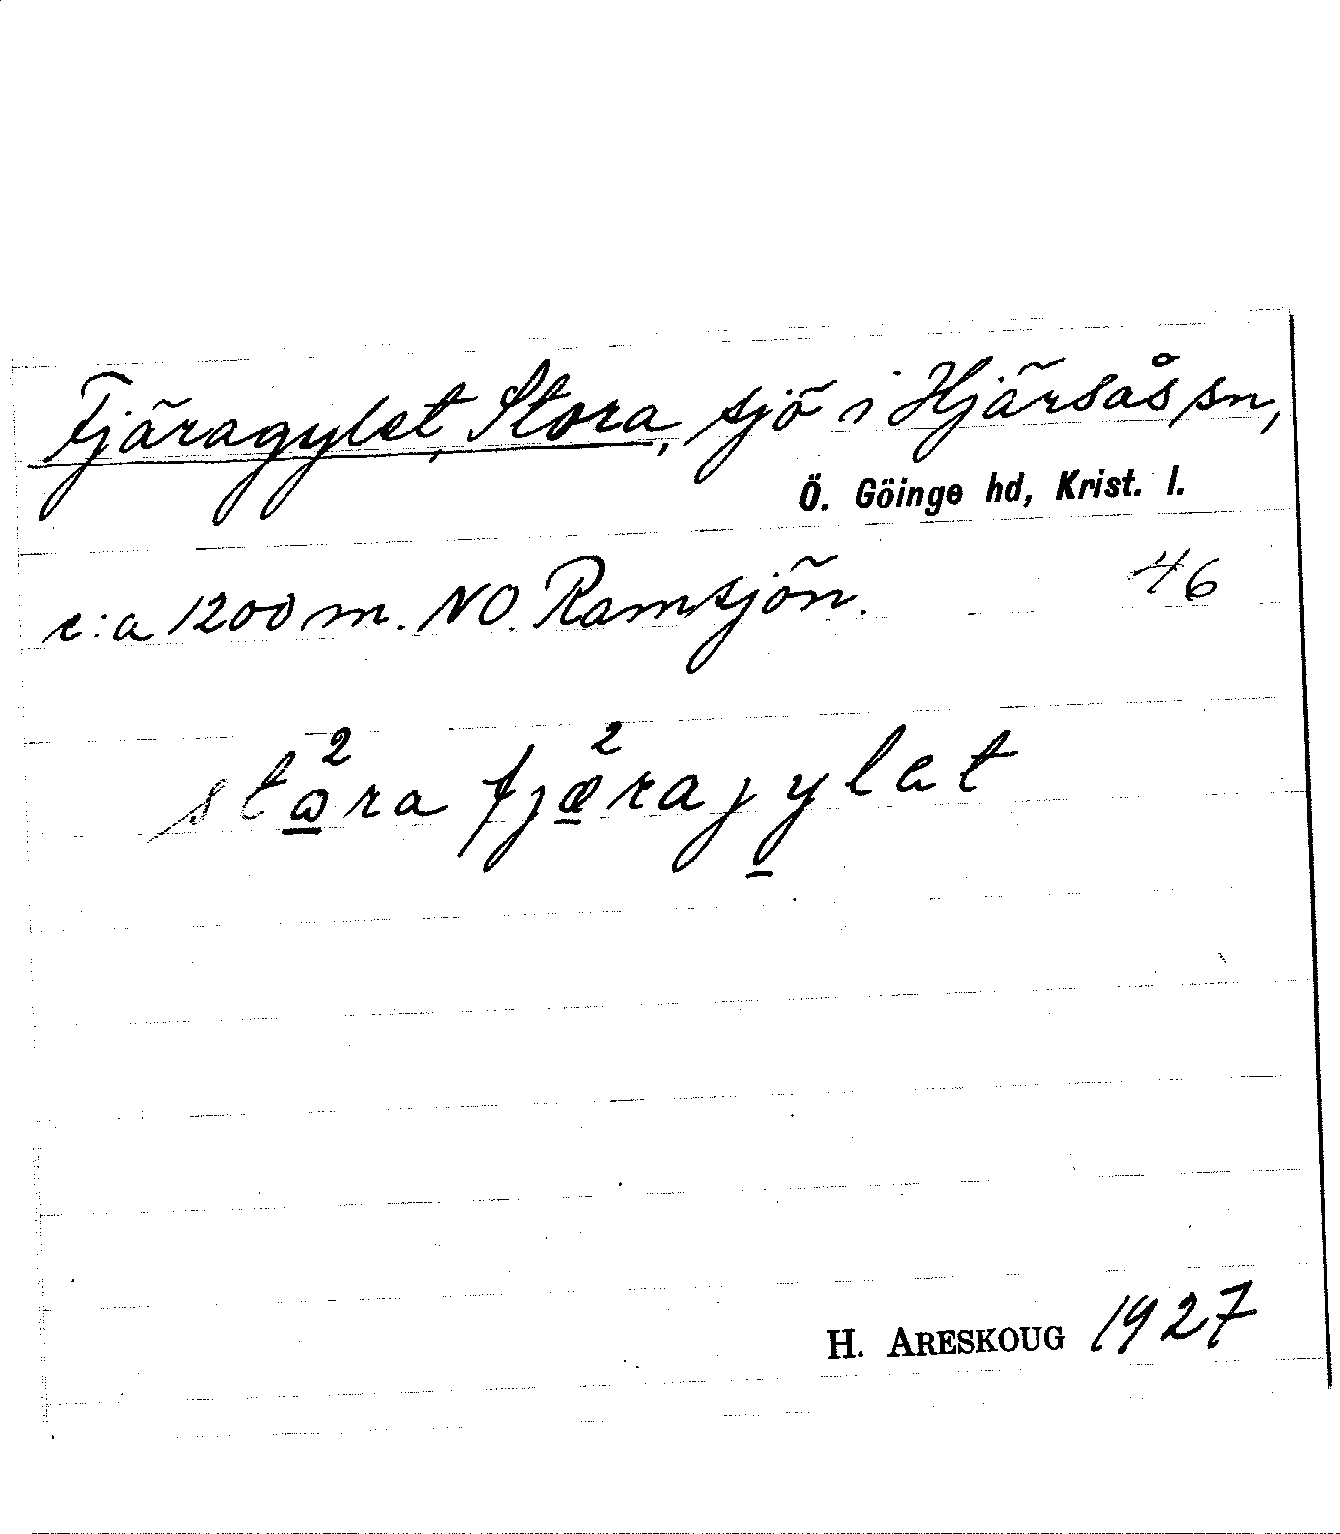 Fjäragylet, Stora, sjö i Hjärsås sn,
Ö. Göinge hd, Krist. l.
c:a 1200 m. NO. Ramsjön. 46
stω̲²ra fjæ̲²rajy̲lat
H. ARESKOUG 1927